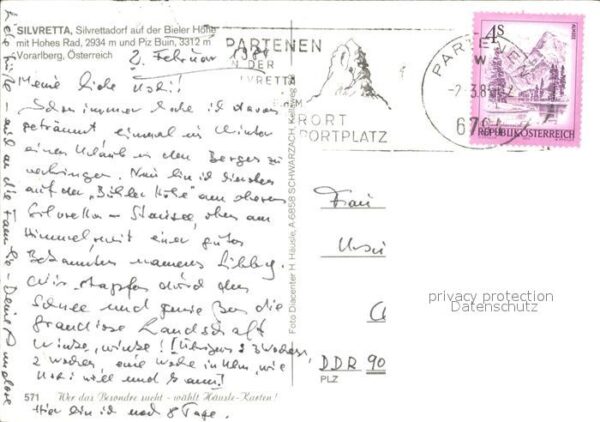 SILVRETTA, Silvrettadorf auf der Bieler Höhe
mit Hohes Rad, 2934 m und Piz Buin, 3312 m
Vorarlberg, Österreich
2. Februar 1984
Meine liebe Uschi!
Schon immer habe ich davon
geträumt einmal im Winter
einen Urlaub in den Bergen zu
verbringen. Nun bin ich
auf der "Bühler Höhe" am oberen
Silvretta - Stausee, oben am
Himmel, mit einer guten
Bekannten namens Libby.
Wir stapfen durch den
Schnee und genießen die
grandiose Landschaft
Winke, winke! 3 Wochen,
2 Wochen, eine Woche in
will und kann!
Hier bin ich noch 8 Tage.
571 Wer das Besondre sucht - wählt Häusle-Karten!
Liebe Grüße - auch an die Familie - Deine
Foto Diacenter H. Häusle, A 6858 SCHWARZACH,
PARTENEN
IN DER
SILVRETTA
KURORT
SPORTPLATZ
PARTENEN
4S
REPUBLIK ÖSTERREICH
Frau
DDR 90
PLZ
privacy protection
Datenschutz